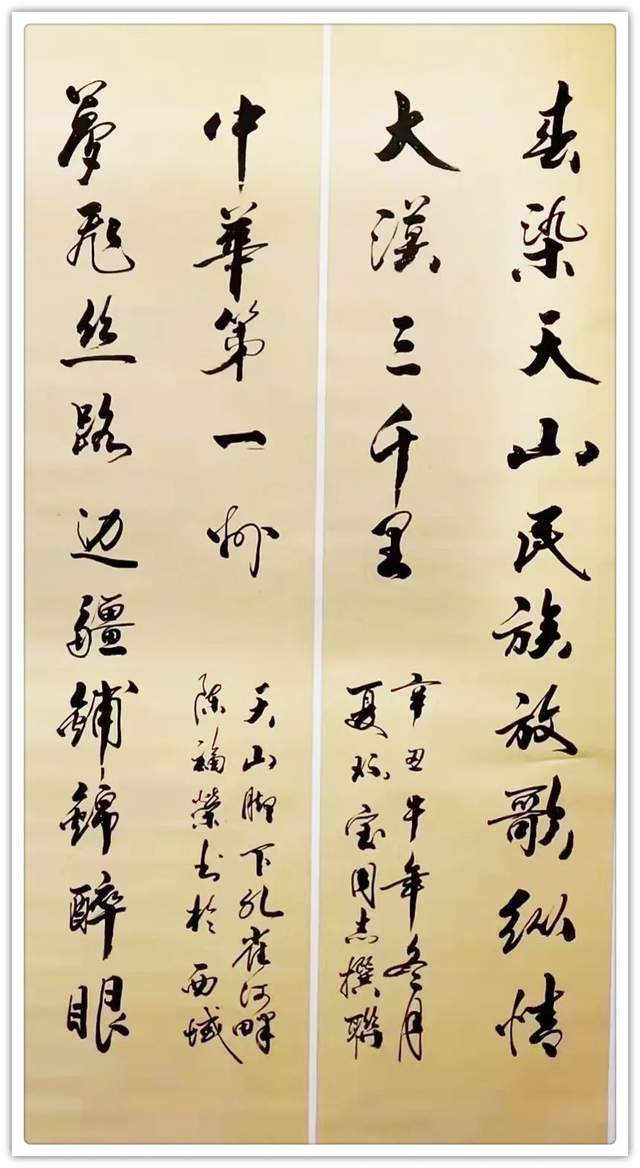 春染天山民族放歌纵情
大漠三千里
辛丑牛年冬月
夏宝同志撰聯
夢飛丝路边疆鋪錦醉眼
中華第一州
天山脚下孔雀河畔
陈福榮书於西域